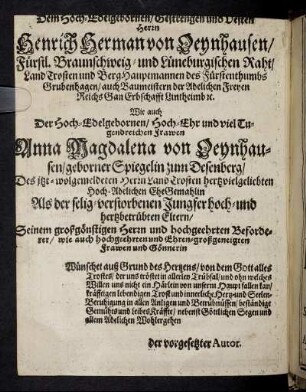 Dem Hoch-Edelgebornen/ Gestrengen und Vesten
Herrn
Henrich Herman von Oeynhausen/
Fürstl. Braunschweig- und Lüneburgischen Raht/
Land Drosten und Berg-Hauptmannen des Fürstenthumbs
Grubenhagen/ auch Baumeistern der Adelichen Freyen
Reichs Gan Erbschafft Untheimb ꝛc.
Wie auch
Der Hoch-Edelgebornen/ Hoch-Ehr und viel Tu-
gendreichen Frawen
Anna Magdalena von Oeynhau-
sen/ geborner Spiegelin zum Desenberg/
Des itzt-wolgemeldeten Herrn Land Drosten hertzvielgeliebten
Hoch-Adelichen EheGemahlin
Als der selig-verstorbenen Jungfer hoch- und
hertzbetrübten Eltern/
Seinem großgönstigen Herrn und hochgeehrten Beforde-
rer/ wie auch hochgeehrten und Ehren-großgeneigten
Frawen und Gönnerin
Wünschet auß Grund des Hertzens/ von dem Gott alles
Trostes/ der uns tröstet in allerley Trübsal/ und ohn welches
Willen uns nicht ein Härlein von unserm Haupt fallen kan/
kräfftigen lebendigen Trost und innerliche Hertz- und Seelen-
Beruhigung in allen Anligen und Betrübnüssen/ beständige
Gemühts und Leibes Kräffte/ nebenst Göttlichen Segen und
allem Adelichen Wohlergehen
der vorgesetzter Autor.